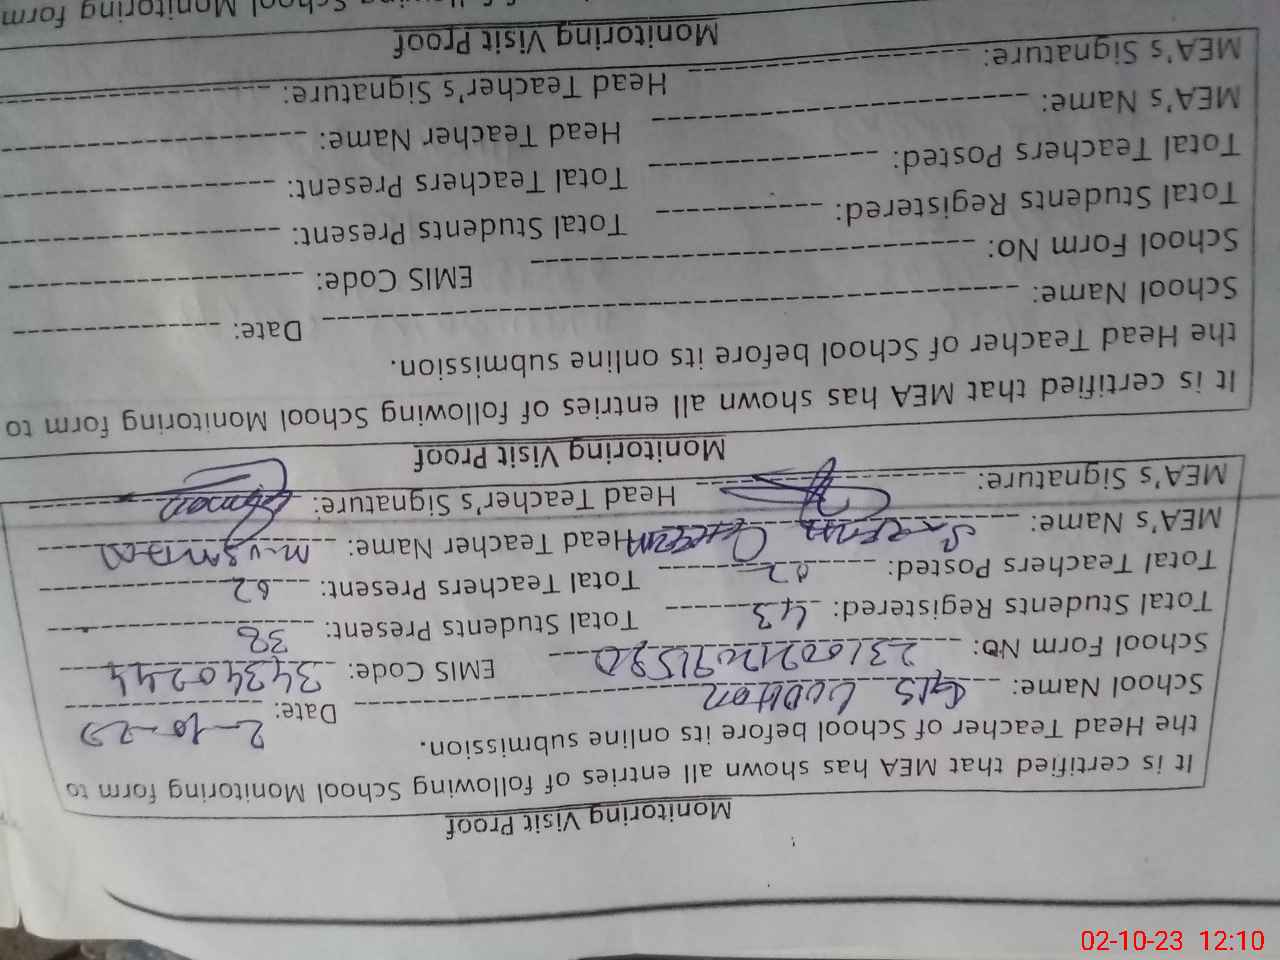 Monitoring Visit Proof
It is certified that MEA has shown all entries of following School Monitoring form to
the Head Teacher of School before its online submission.
School Name: GPS Date: 2-10-23
School Form No: EMIS Code: 34340244
Total Students Registered: 43 Total Students Present: 38
Total Teachers Posted: 02 Total Teachers Present: 02
MEA's Name: Head Teacher Name: M. USman
MEA's Signature: Head Teacher's Signature:
Monitoring Visit Proof
It is certified that MEA has shown all entries of following School Monitoring form to
the Head Teacher of School before its online submission.
School Name: Date:
School Form No: EMIS Code:
Total Students Registered: Total Students Present:
Total Teachers Posted: Total Teachers Present:
MEA's Name: Head Teacher Name:
MEA's Signature: Head Teacher's Signature:
Monitoring Visit Proof
School Monitoring form
02-10-23 12:10